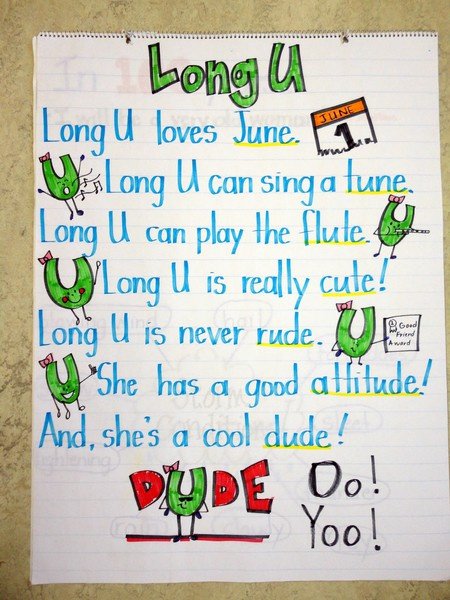 Long U
Long U loves June.
JUNE
1
Long U can sing a tune.
Long U can play the flute.
Long U is really cute!
Long U is never rude.
Good
Friend
Award
She has a good attitude!
And, she's a cool dude!
DUDE
Oo!
Yoo!